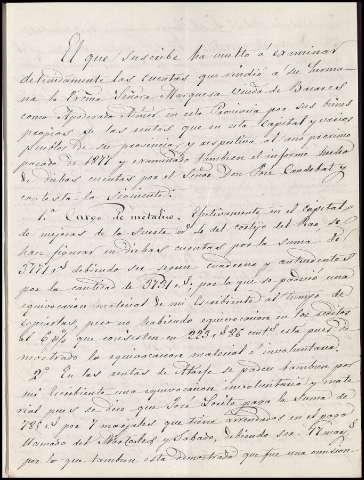 El que suscribe ha vuelto á examinar
detenidamente las cuentas que rindió á su herma-
na la Excma Señora Marquesa viuda de Benares
como Apoderado Admor en esta Provincia por sus bienes
propios de las rentas que en esta Capital y varios
Pueblos de su provincia, y respectivo al año próximo
pasado de 1877 y examinado tambien el informe hecho
de dichas cuentas por el Señor Don José
contesta lo siguiente:
1º Cargo de metálico. Efectivamente en el capital
de mejoras de la Suerte nº 4 del cortijo del Rao se
han figurar en dichas cuentas por la suma de
3757 rs debiendo su segun cuaderno y antecedentes
por la cantidad de 3721 rs, por lo que se padeció una
equivocacion material de mi escribiente al tiempo de
copiarlas, pero no habiendo equivocacion en los reditos
al 6 p% que consisten en 223 rs 26 cents esta pues de-
mostrado la equivocacion material é involuntaria.
2º En las rentas de Atarfe se padece tambien por
mi Escribiente una equivocacion involuntaria y mate-
rial pues se dice que José paga la suma de
785 rs por 7 marjales que tiene arrendados en el pago
llamado del Miercoles y Sábado, debiendo ser 17 mars
por lo que tambien esta demostrado que fue una omision